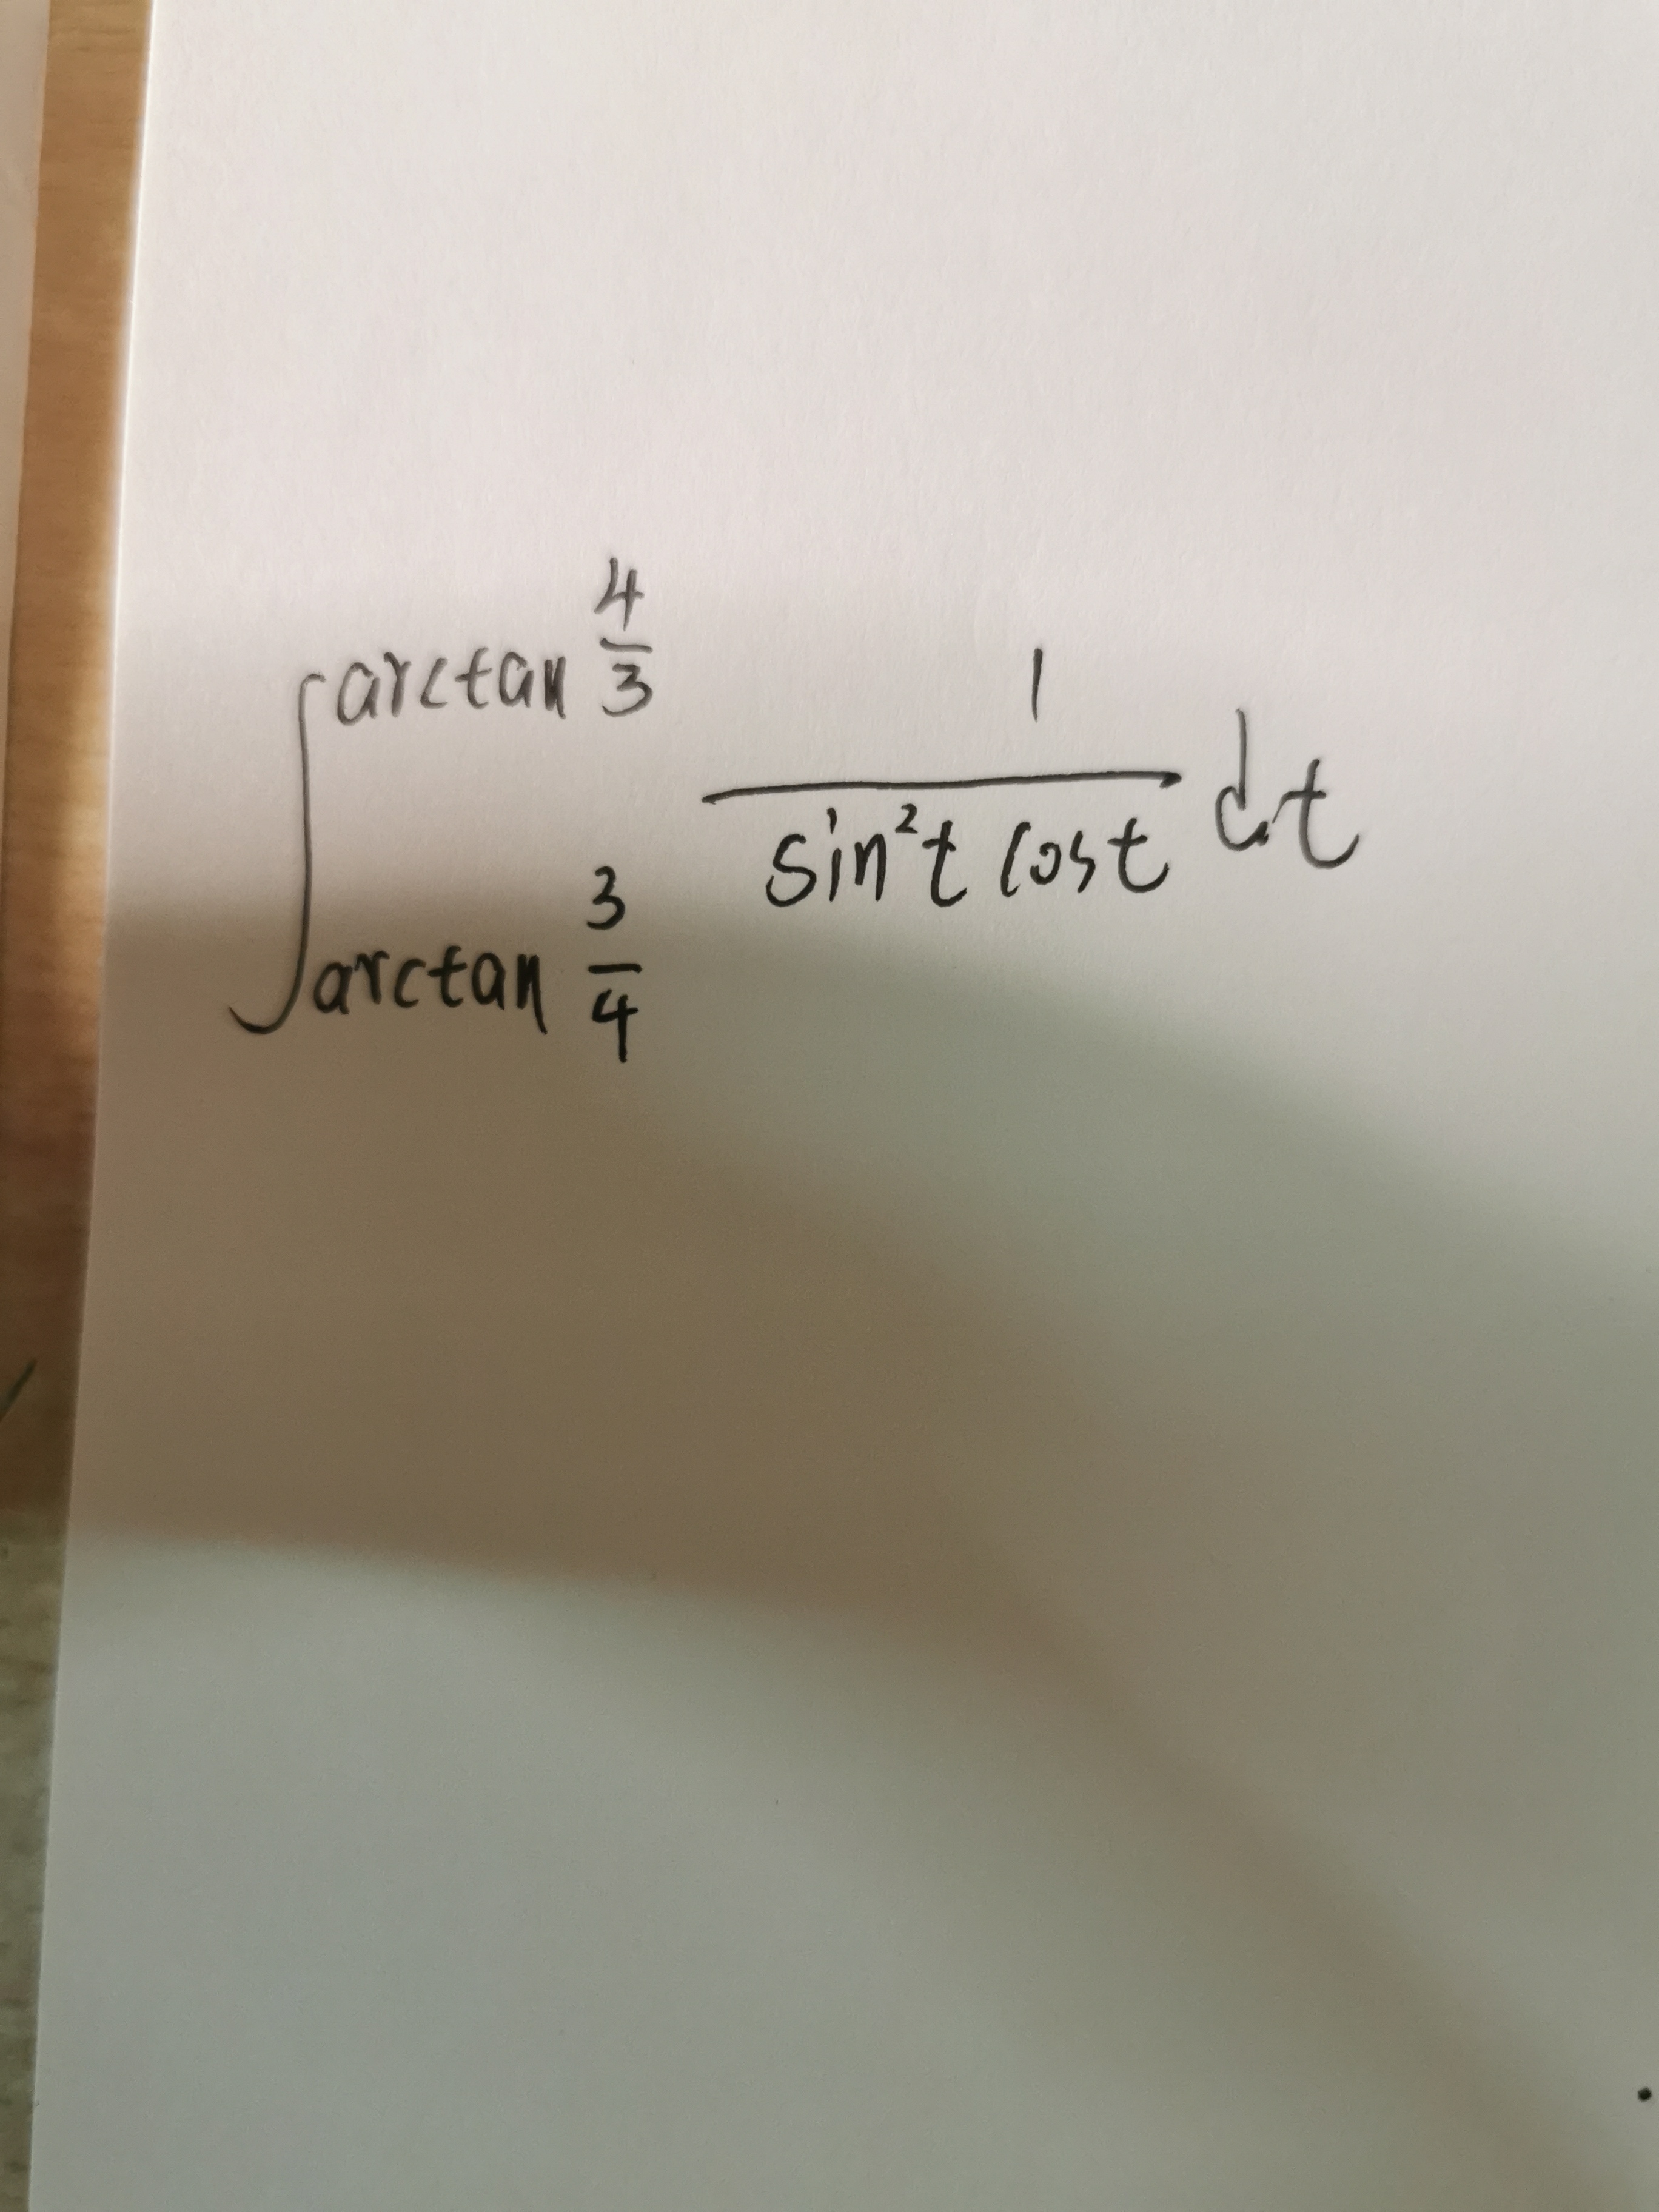 ∫_{arctan 3/4}^{arctan 4/3} 1/(sin²t cost) dt